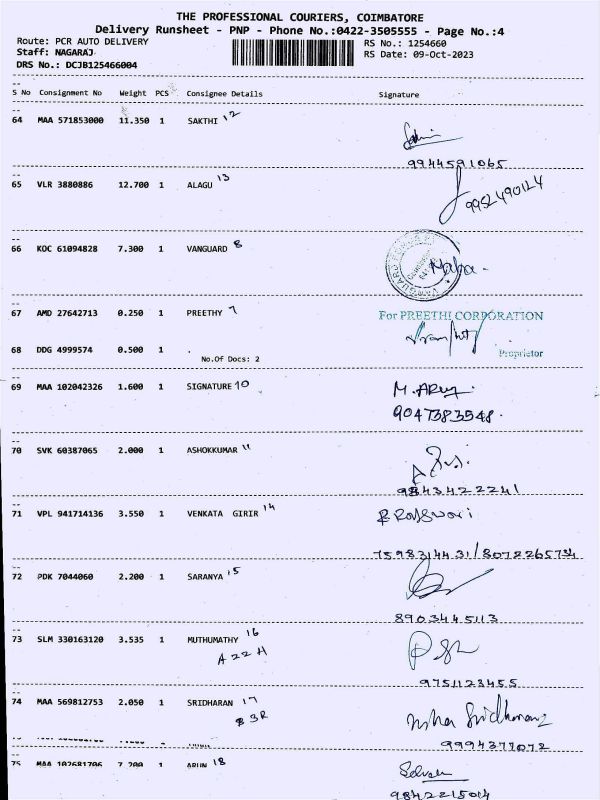 THE PROFESSIONAL COURIERS, COIMBATORE
Delivery Runsheet - PNP - Phone No.:0422-3505555 - Page No.:4
Route: PCR AUTO DELIVERY RS No.: 1254660
Staff: NAGARAJ RS Date: 09-Oct-2023
DRS No.: DCJB125466004
S No Consignment No Weight PCS Consignee Details Signature
64 MAA 571853000 11.350 1 SAKTHI 12
9944591065
65 VLR 3880886 12.700 1 ALAGU 13
9952490124
66 KOC 61094828 7.300 1 VANGUARD 8
Maha.
67 AMD 27642713 0.250 1 PREETHY 7 For PREETHI CORPORATION
68 DDG 4999574 0.500 1 . Proprietor
No.Of Docs: 2
69 MAA 102042326 1.600 1 SIGNATURE 10 M. ARUL
9047383548.
70 SVK 60387065 2.000 1 ASHOKKUMAR 11
9843422241
71 VPL 941714136 3.550 1 VENKATA GIRIR 14
7598314431/8072265734
72 PDK 7044060 2.200 1 SARANYA 15
8903445113
73 SLM 330163120 3.535 1 MUTHUMATHY 16
A 22 H
9751123455
74 MAA 569812753 2.050 1 SRIDHARAN 17
B 3R
9994377072
75 MAA 102681706 7.200 1 ARUN 18
9842215014